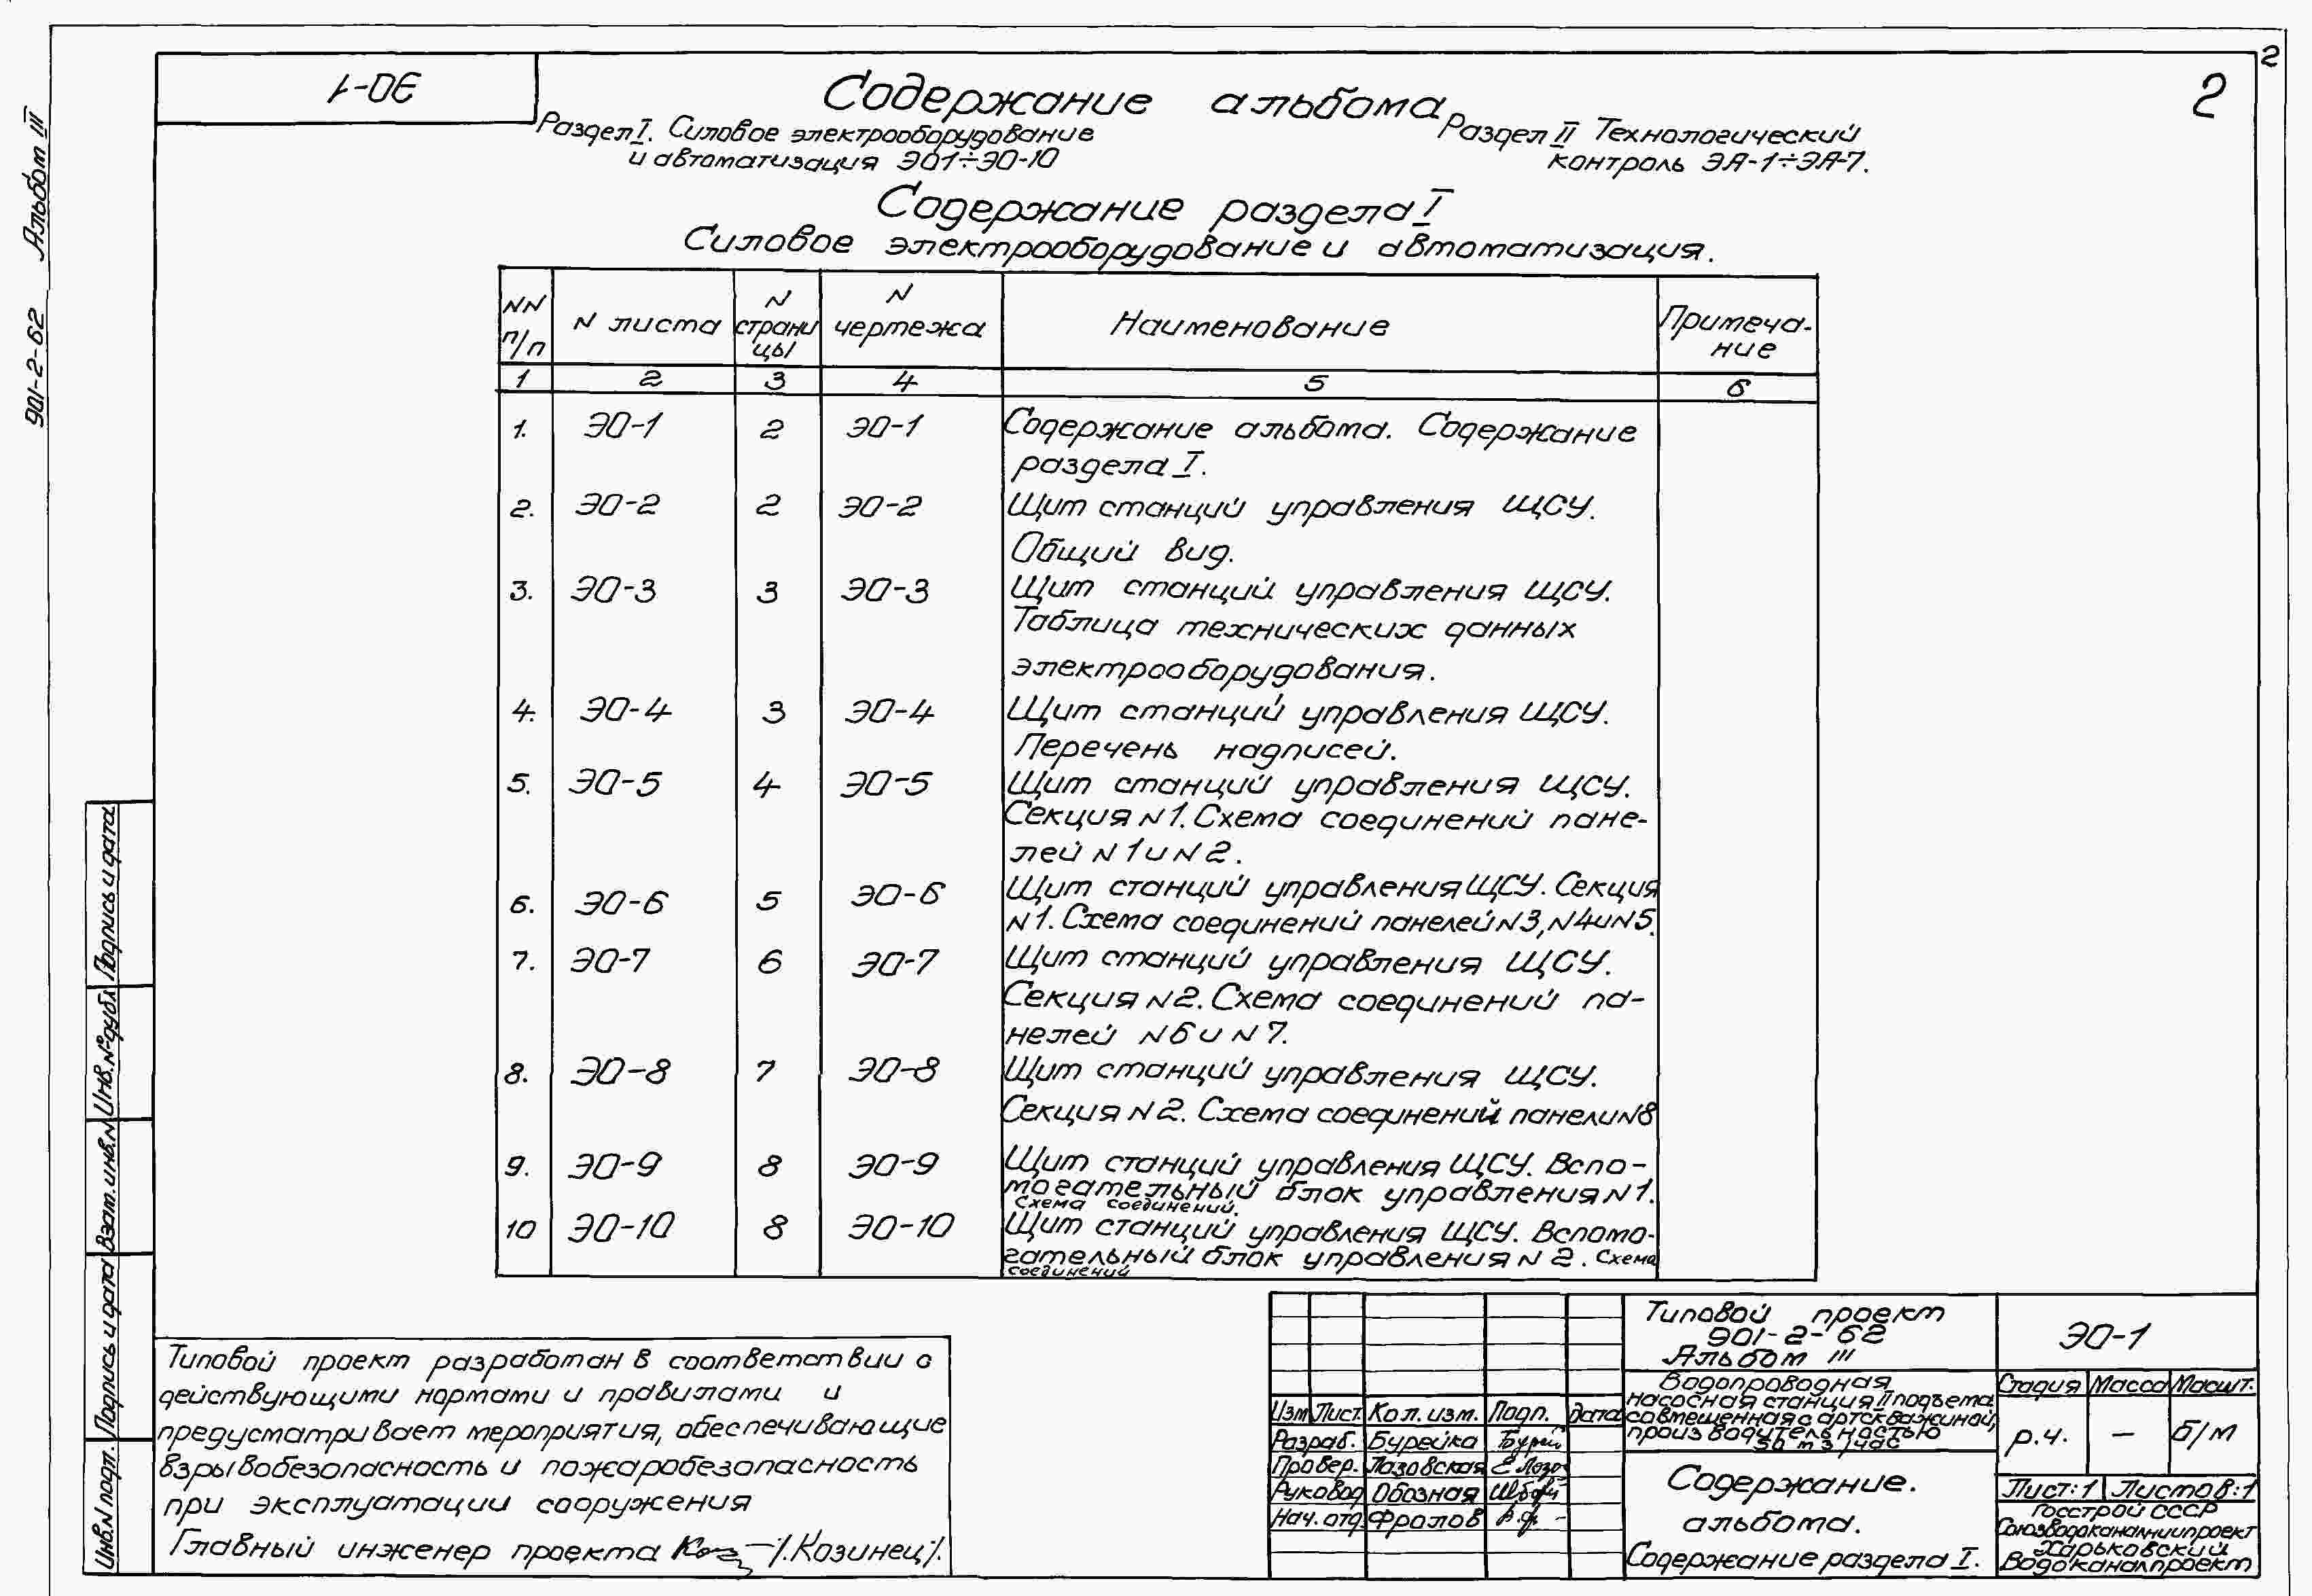 2
ЭО-1
2
Содержание альбома
Раздел I. Силовое электрооборудование
и автоматизация ЭО1÷ЭО-10
Раздел II Технологический
контроль ЭА-1÷ЭА-7.
Содержание раздела I
Силовое электрооборудование и автоматизация.
901-2-62 Альбом III
NN п/п | N листа | N страницы | N чертежа | Наименование | Примеча-
ние
1 2 3 4 5 6
1. ЭО-1 2 ЭО-1 Содержание альбома. Содержание
раздела I.
2. ЭО-2 2 ЭО-2 Щит станций управления ЩСУ.
Общий вид.
3. ЭО-3 3 ЭО-3 Щит станций управления ЩСУ.
Таблица технических данных
электрооборудования.
4. ЭО-4 3 ЭО-4 Щит станций управления ЩСУ.
Перечень надписей.
5. ЭО-5 4 ЭО-5 Щит станций управления ЩСУ.
Секция N1. Схема соединений пане-
лей N1 и N2.
6. ЭО-6 5 ЭО-6 Щит станций управления ЩСУ. Секция
N1. Схема соединений панелей N3, N4 и N5.
7. ЭО-7 6 ЭО-7 Щит станций управления ЩСУ.
Секция N2. Схема соединений па-
нелей N6 и N7.
8. ЭО-8 7 ЭО-8 Щит станций управления ЩСУ.
Секция N2. Схема соединений панели N8
9. ЭО-9 8 ЭО-9 Щит станций управления ЩСУ. Вспо-
могательный блок управления N1.
Схема соединений.
10 ЭО-10 8 ЭО-10 Щит станций управления ЩСУ. Вспомо-
гательный блок управления N2. Схема
соединений
Подпись и дата
Инв.№дубл
Взам.инв.N
Подпись и дата
Инв.N подл.
Типовой проект разработан в соответствии с
действующими нормами и правилами и
предусматривает мероприятия, обеспечивающие
взрывобезопасность и пожаробезопасность
при эксплуатации сооружения
Главный инженер проекта /.Козинец/.
Изм Лист. Кол.изм. Подп. Дата
Разраб. Бурейка
Провер. Лазовская
Руковод Обозная
Нач.отд. Фролов
Типовой проект
901-2-62
Альбом III
Водопроводная
насосная станция II подъема
совмещенная с артскважиной,
производительностью
50 м3/час
Содержание.
альбома.
Содержание раздела I.
ЭО-1
Стадия Масса Масшт.
р.ч. — б/м
Лист:1 Листов:1
Госстрой СССР
Союзводоканалниипроект
Харьковский
Водоканалпроект